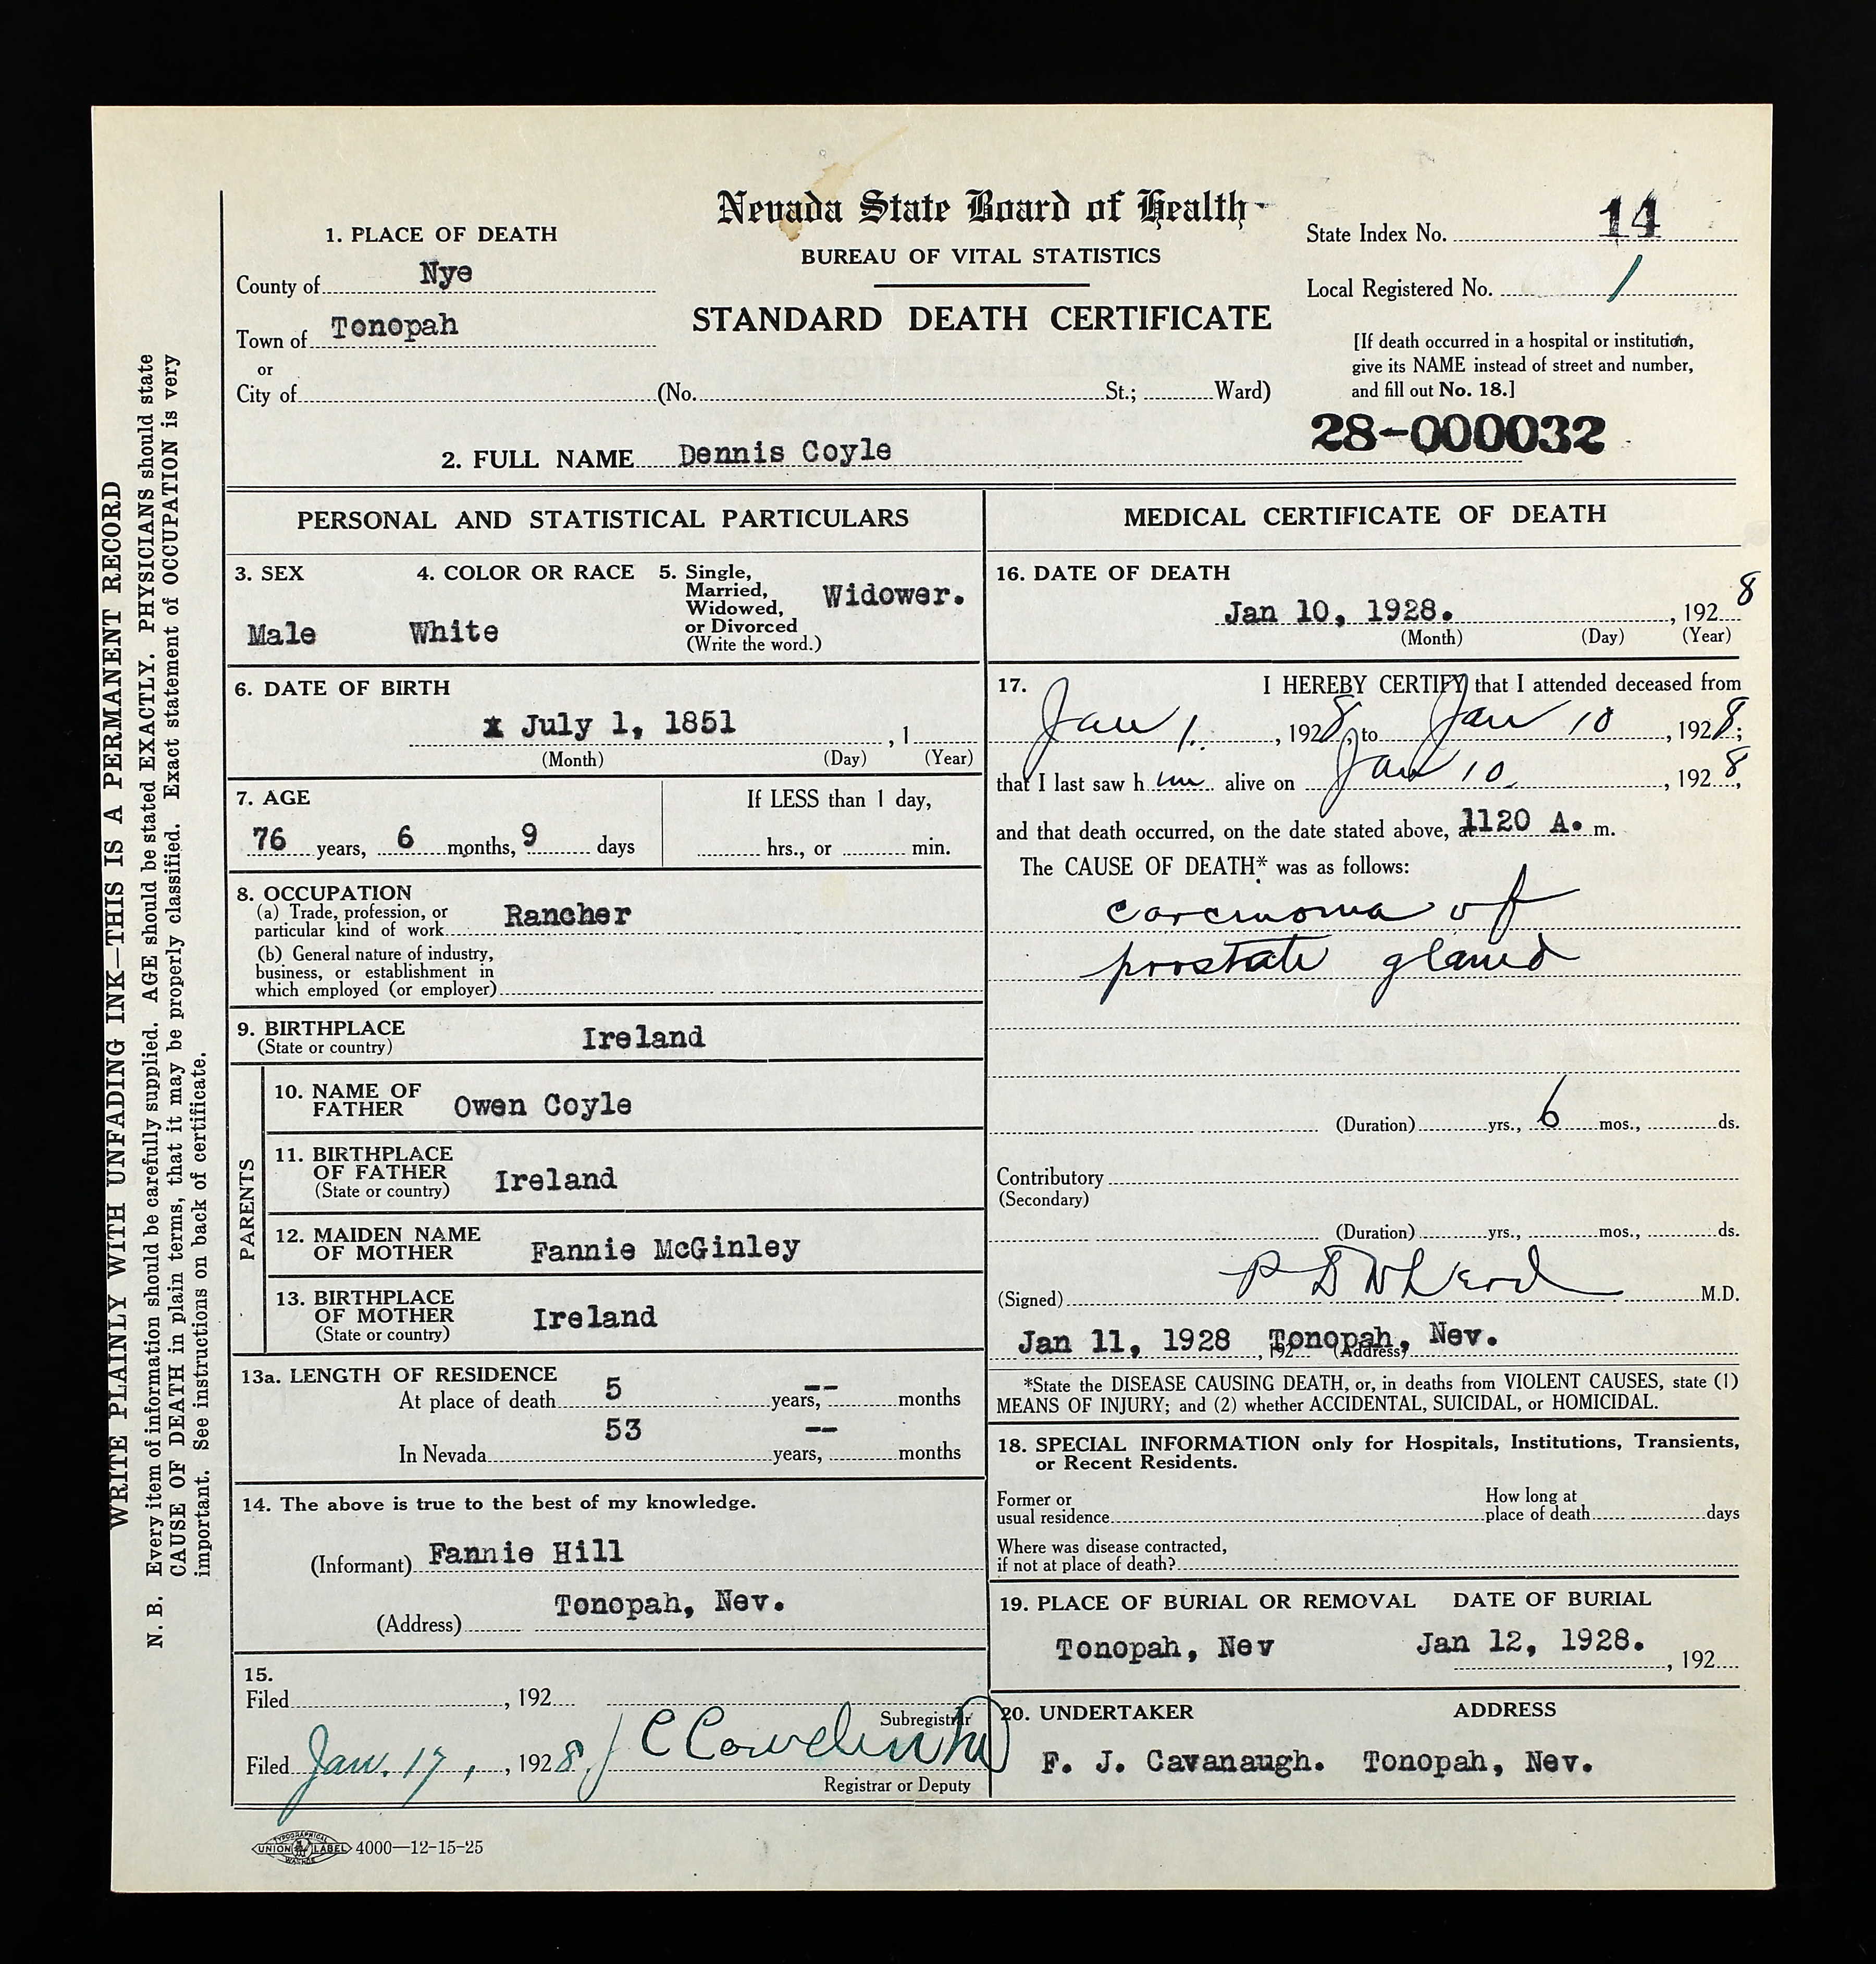 Nevada State Board of Health
BUREAU OF VITAL STATISTICS
STANDARD DEATH CERTIFICATE
State Index No. 14
Local Registered No. 1
[If death occurred in a hospital or institution,
give its NAME instead of street and number,
and fill out No. 18.]
28-000032
1. PLACE OF DEATH
County of Nye
Town of Tonopah
or
City of (No. St.; Ward)
2. FULL NAME Dennis Coyle
PERSONAL AND STATISTICAL PARTICULARS
3. SEX
Male
4. COLOR OR RACE
White
5. Single,
Married,
Widowed,
or Divorced
(Write the word.)
Widower.
6. DATE OF BIRTH
July 1, 1851 , 1
(Month) (Day) (Year)
7. AGE
76 years, 6 months, 9 days
If LESS than 1 day,
hrs., or min.
8. OCCUPATION
(a) Trade, profession, or
particular kind of work Rancher
(b) General nature of industry,
business, or establishment in
which employed (or employer)
9. BIRTHPLACE
(State or country) Ireland
PARENTS
10. NAME OF
FATHER Owen Coyle
11. BIRTHPLACE
OF FATHER
(State or country) Ireland
12. MAIDEN NAME
OF MOTHER Fannie McGinley
13. BIRTHPLACE
OF MOTHER
(State or country) Ireland
13a. LENGTH OF RESIDENCE
At place of death 5 years, -- months
In Nevada 53 years, -- months
14. The above is true to the best of my knowledge.
(Informant) Fannie Hill
(Address) Tonopah, Nev.
15.
Filed , 192
Subregistrar
Filed Jan. 17, , 1928
Registrar or Deputy
MEDICAL CERTIFICATE OF DEATH
16. DATE OF DEATH
Jan 10, 1928. , 1928
(Month) (Day) (Year)
17. I HEREBY CERTIFY that I attended deceased from
Jan 1. , 1928, to Jan 10 , 1928;
that I last saw h im alive on Jan 10 , 1928,
and that death occurred, on the date stated above, at 1120 A. m.
The CAUSE OF DEATH* was as follows:
carcinoma of
prostate gland
(Duration) yrs., 6 mos., ds.
Contributory
(Secondary)
(Duration) yrs., mos., ds.
(Signed) M.D.
Jan 11, 1928 , 192 (Address) Tonopah, Nev.
*State the DISEASE CAUSING DEATH, or, in deaths from VIOLENT CAUSES, state (1)
MEANS OF INJURY; and (2) whether ACCIDENTAL, SUICIDAL, or HOMICIDAL.
18. SPECIAL INFORMATION only for Hospitals, Institutions, Transients,
or Recent Residents.
Former or
usual residence
How long at
place of death days
Where was disease contracted,
if not at place of death?
19. PLACE OF BURIAL OR REMOVAL DATE OF BURIAL
Tonopah, Nev Jan 12, 1928. , 192
20. UNDERTAKER ADDRESS
F. J. Cavanaugh. Tonopah, Nev.
WRITE PLAINLY WITH UNFADING INK—THIS IS A PERMANENT RECORD
N. B. Every item of information should be carefully supplied. AGE should be stated EXACTLY. PHYSICIANS should state
CAUSE OF DEATH in plain terms, that it may be properly classified. Exact statement of OCCUPATION is very
important. See instructions on back of certificate.
TYPOGRAPHICAL
UNION LABEL
4000—12-15-25